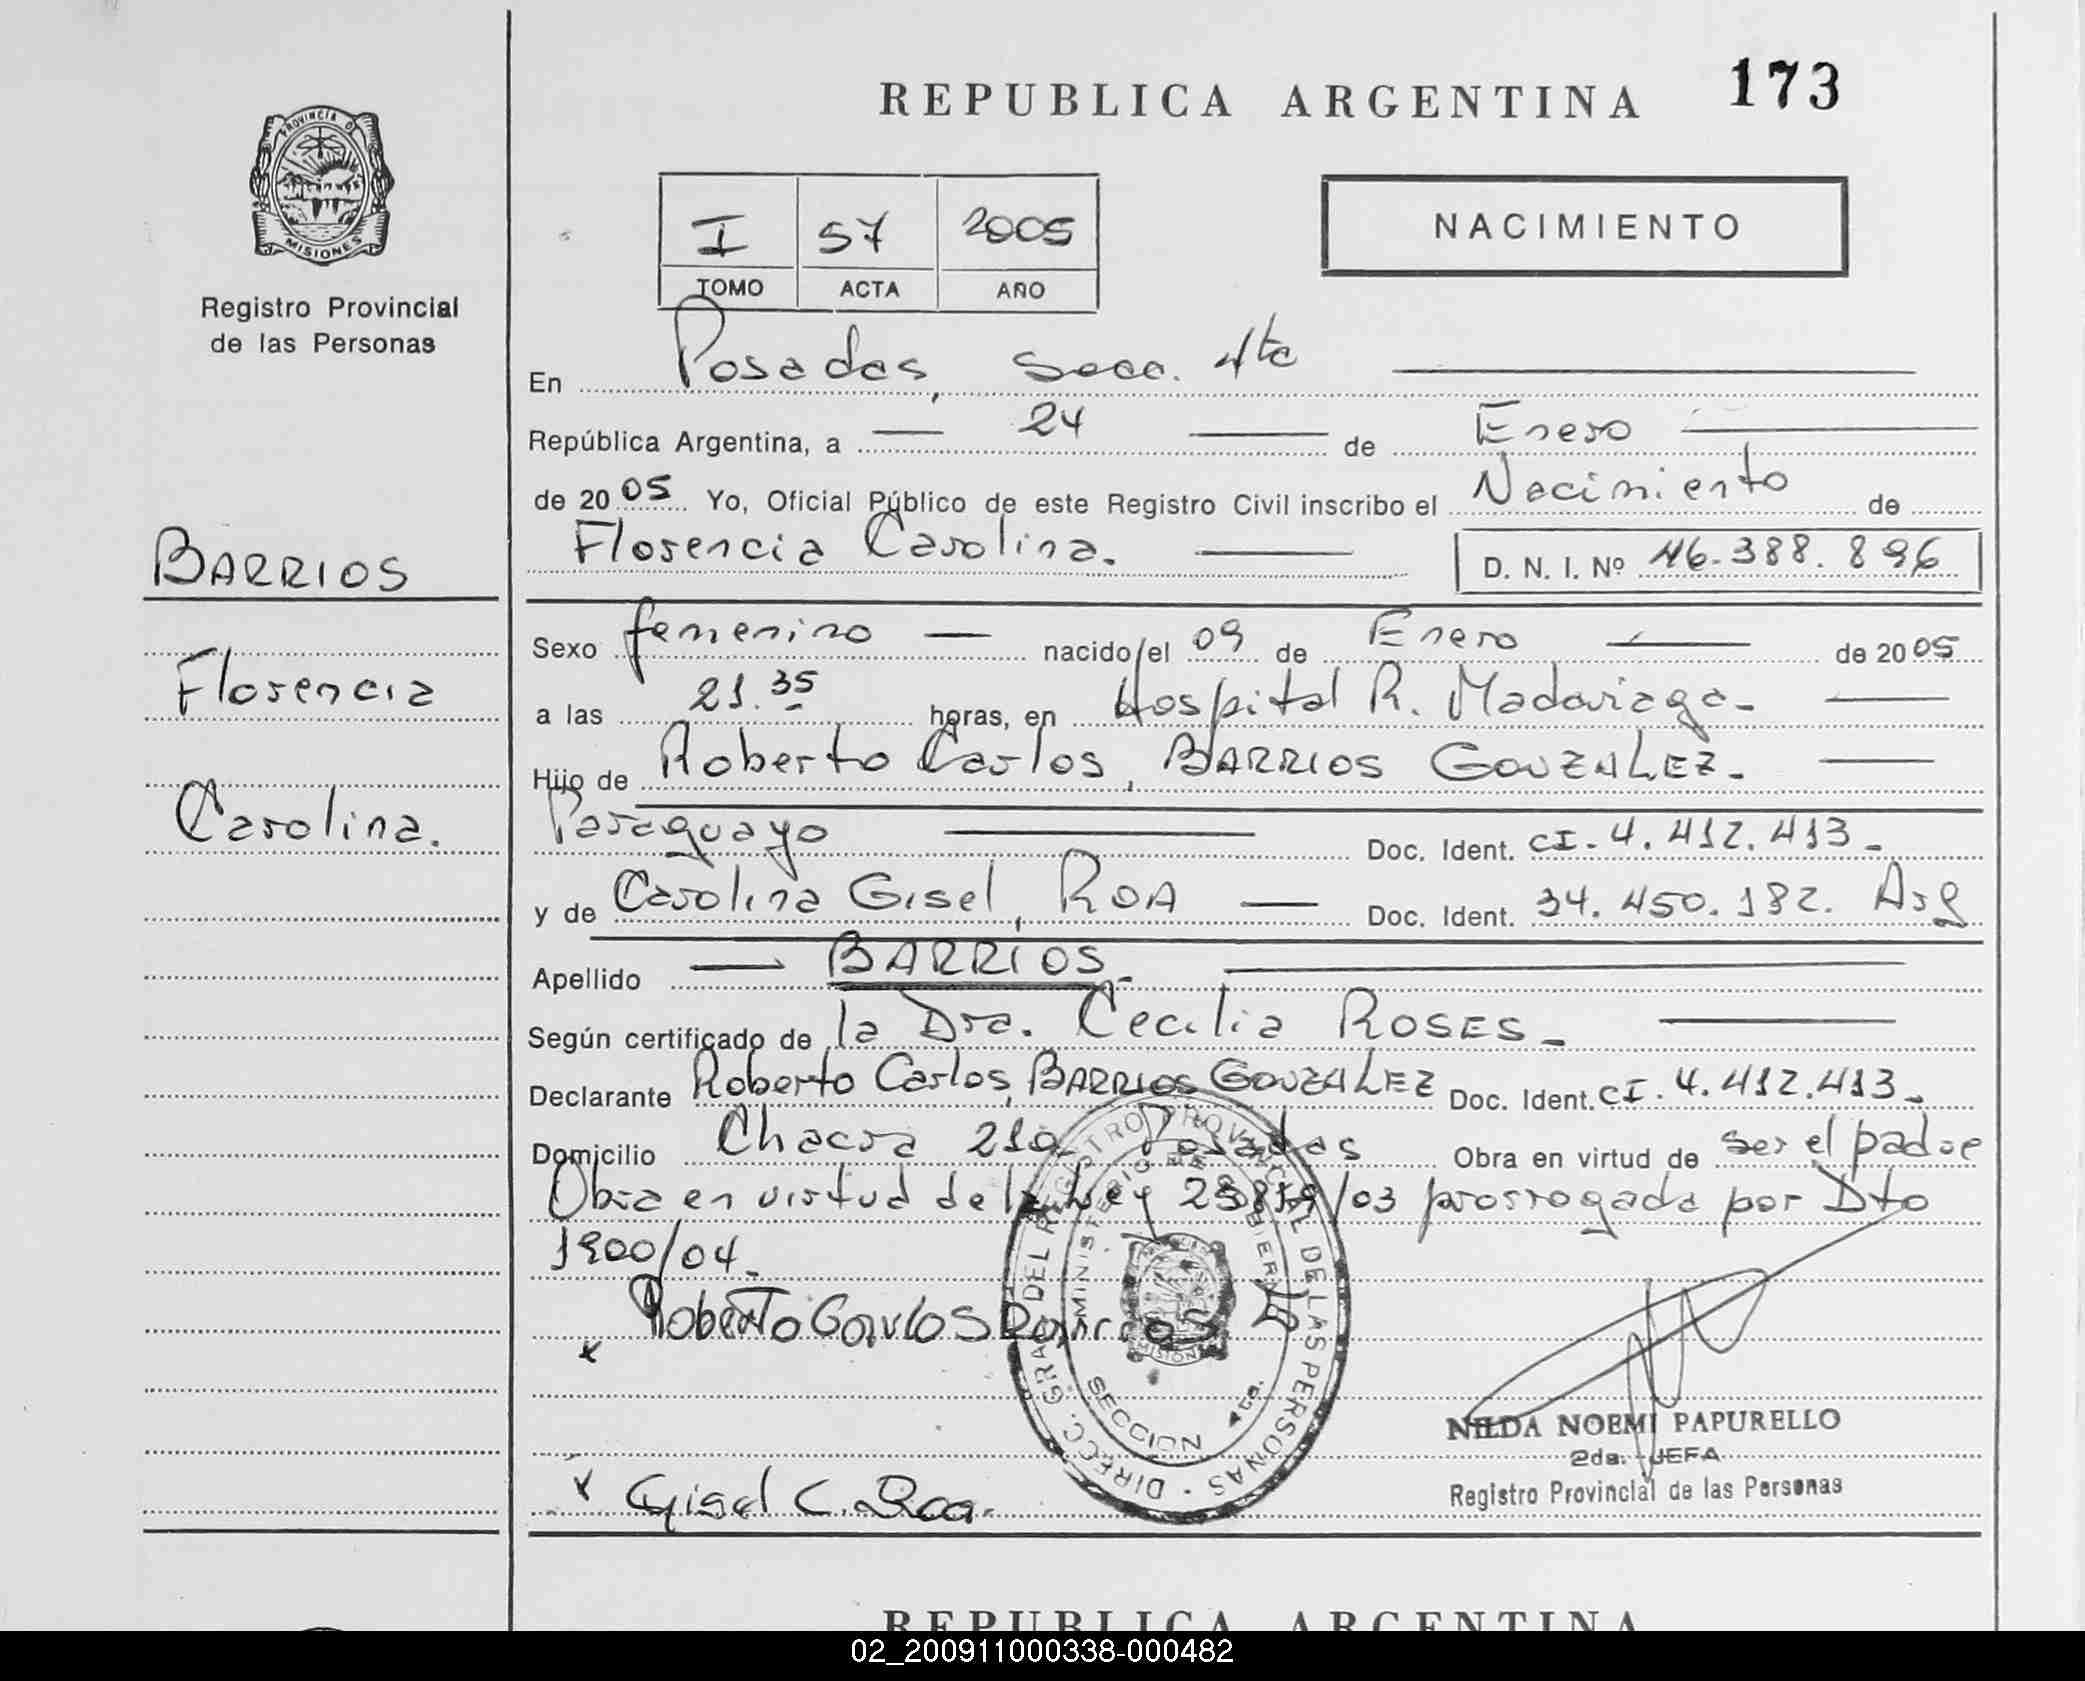 REPUBLICA ARGENTINA 173
PROVINCIA D
MISIONES
Registro Provincial
de las Personas
I 57 2005
TOMO ACTA AÑO
NACIMIENTO
En Posadas, Secc. 4ta
República Argentina, a 24 de Enero
de 2005 Yo, Oficial Público de este Registro Civil inscribo el Nacimiento de
Florencia Carolina. D. N. I. Nº 46.388.896
BARRIOS
Florencia
Carolina.
Sexo femenino nacido el 09 de Enero de 2005
a las 21.35 horas, en Hospital R. Madariaga-
Hijo de Roberto Carlos, BARRIOS GONZALEZ.
Paraguayo Doc. Ident. CI. 4.412.413-
y de Carolina Gisel, ROA Doc. Ident. 34.450.182. Arg
Apellido BARRIOS-
Según certificado de la Dra. Cecilia ROSES-
Declarante Roberto Carlos, BARRIOS GONZALEZ Doc. Ident. CI. 4.412.413-
Domicilio Chacra Posadas Obra en virtud de ser el padre
Obra en virtud de la Ley /03 prorrogada por Dto
1900/04-
x Roberto Carlos Barrios
x Gisel C. Roa.
DIRECC. GRAL DEL REGISTRO PROVINCIAL DE LAS PERSONAS
MINISTERIO DE GOBIERNO
MISIONES
SECCION 4ta.
NILDA NOEMI PAPURELLO
2da. JEFA
Registro Provincial de las Personas
REPUBLICA ARGENTINA
02_200911000338-000482